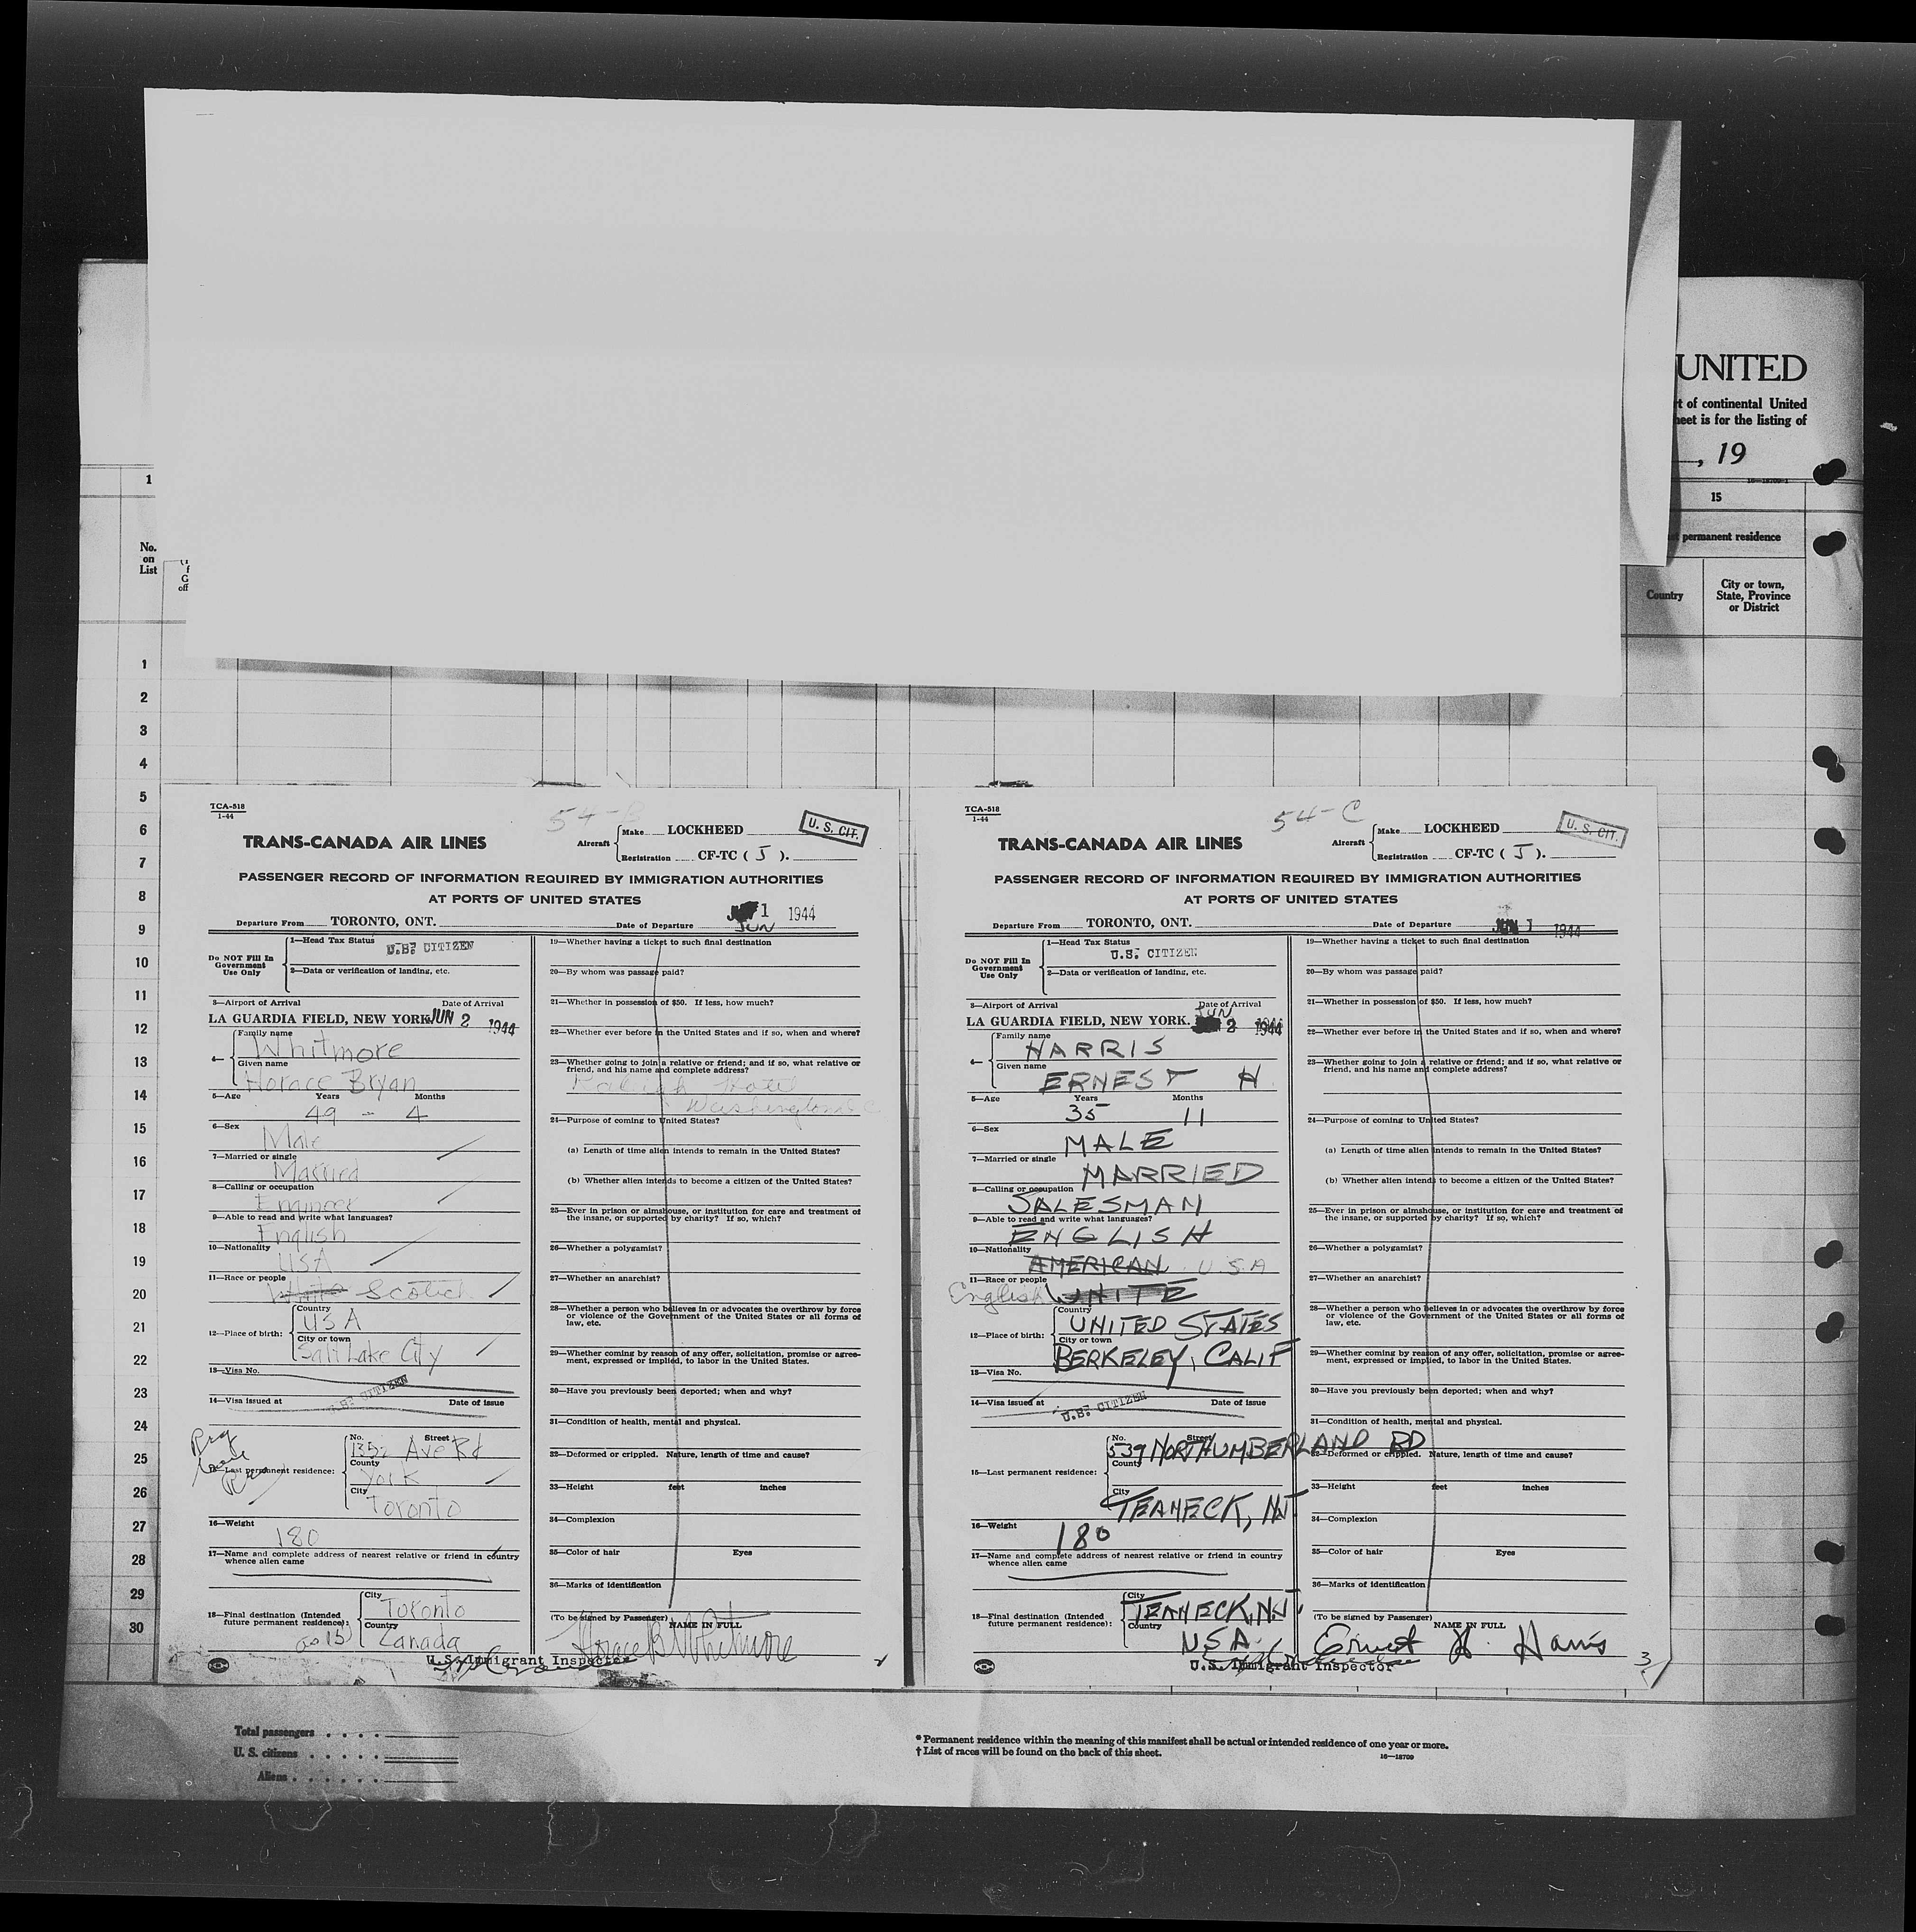 UNITED
rt of continental United
heet is for the listing of
, 19
1
15
permanent residence
No.
on
List
Country
City or town,
State, Province
or District
1
2
3
4
5
6
7
8
9
10
11
12
13
14
15
16
17
18
19
20
21
22
23
24
25
26
27
28
29
30
TCA-518
1-44
54-B
U. S. CIT.
TRANS-CANADA AIR LINES
Aircraft
Make LOCKHEED
Registration CF-TC ( J ).
PASSENGER RECORD OF INFORMATION REQUIRED BY IMMIGRATION AUTHORITIES
AT PORTS OF UNITED STATES
Departure From TORONTO, ONT. Date of Departure JUN 1 1944
Do NOT Fill In
Government
Use Only
1—Head Tax Status U.S. CITIZEN
2—Data or verification of landing, etc.
3—Airport of Arrival Date of Arrival
LA GUARDIA FIELD, NEW YORK JUN 2 1944
4—
Family name
Whitmore
Given name
Horace Bryan
5—Age Years Months
49 - 4
6—Sex
Male
7—Married or single
Married
8—Calling or occupation
Engineer
9—Able to read and write what languages?
English
10—Nationality
USA
11—Race or people
White Scotch
12—Place of birth:
Country
USA
City or town
Salt Lake City
13—Visa No.
U.S. CITIZEN
14—Visa issued at Date of issue
15—Last permanent residence:
No. Street
135 Ave Rd
County
York
City
Toronto
16—Weight
180
17—Name and complete address of nearest relative or friend in country
whence alien came
18—Final destination (Intended
future permanent residence):
City
Toronto
Country
Canada
19—Whether having a ticket to such final destination
20—By whom was passage paid?
21—Whether in possession of $50. If less, how much?
22—Whether ever before in the United States and if so, when and where?
23—Whether going to join a relative or friend; and if so, what relative or
friend, and his name and complete address?
Raleigh Hotel
Washington D C
24—Purpose of coming to United States?
(a) Length of time alien intends to remain in the United States?
(b) Whether alien intends to become a citizen of the United States?
25—Ever in prison or almshouse, or institution for care and treatment of
the insane, or supported by charity? If so, which?
26—Whether a polygamist?
27—Whether an anarchist?
28—Whether a person who believes in or advocates the overthrow by force
or violence of the Government of the United States or all forms of
law, etc.
29—Whether coming by reason of any offer, solicitation, promise or agree-
ment, expressed or implied, to labor in the United States.
30—Have you previously been deported; when and why?
31—Condition of health, mental and physical.
32—Deformed or crippled. Nature, length of time and cause?
33—Height feet inches
34—Complexion
35—Color of hair Eyes
36—Marks of identification
(To be signed by Passenger) NAME IN FULL
Horace B Whitmore
U.S. Immigrant Inspector
2
TCA-518
1-44
54-C
U. S. CIT.
TRANS-CANADA AIR LINES
Aircraft
Make LOCKHEED
Registration CF-TC ( J ).
PASSENGER RECORD OF INFORMATION REQUIRED BY IMMIGRATION AUTHORITIES
AT PORTS OF UNITED STATES
Departure From TORONTO, ONT. Date of Departure JUN 1 1944
Do NOT Fill In
Government
Use Only
1—Head Tax Status
U.S. CITIZEN
2—Data or verification of landing, etc.
3—Airport of Arrival Date of Arrival
LA GUARDIA FIELD, NEW YORK. JUN 2 1944
4—
Family name
HARRIS
Given name
ERNEST H
5—Age Years Months
35 11
6—Sex
MALE
7—Married or single
MARRIED
8—Calling or occupation
SALESMAN
9—Able to read and write what languages?
ENGLISH
10—Nationality
AMERICAN U.S.A
11—Race or people
English WHITE
12—Place of birth:
Country
UNITED STATES
City or town
BERKELEY, CALIF
13—Visa No.
14—Visa issued at Date of issue
U.S. CITIZEN
15—Last permanent residence:
No. Street
539 NORTHUMBERLAND RD
County
City
TEANECK, NJ.
16—Weight
180
17—Name and complete address of nearest relative or friend in country
whence alien came
18—Final destination (Intended
future permanent residence):
City
TEANECK, NJ.
Country
USA.
19—Whether having a ticket to such final destination
20—By whom was passage paid?
21—Whether in possession of $50. If less, how much?
22—Whether ever before in the United States and if so, when and where?
23—Whether going to join a relative or friend; and if so, what relative or
friend, and his name and complete address?
24—Purpose of coming to United States?
(a) Length of time alien intends to remain in the United States?
(b) Whether alien intends to become a citizen of the United States?
25—Ever in prison or almshouse, or institution for care and treatment of
the insane, or supported by charity? If so, which?
26—Whether a polygamist?
27—Whether an anarchist?
28—Whether a person who believes in or advocates the overthrow by force
or violence of the Government of the United States or all forms of
law, etc.
29—Whether coming by reason of any offer, solicitation, promise or agree-
ment, expressed or implied, to labor in the United States.
30—Have you previously been deported; when and why?
31—Condition of health, mental and physical.
32—Deformed or crippled. Nature, length of time and cause?
33—Height feet inches
34—Complexion
35—Color of hair Eyes
36—Marks of identification
(To be signed by Passenger) NAME IN FULL
Ernest H. Harris
U.S. Immigrant Inspector
3
Total passengers . . . .
U. S. citizens . . . . .
Aliens . . . . . .
* Permanent residence within the meaning of this manifest shall be actual or intended residence of one year or more.
† List of races will be found on the back of this sheet.
16—18709